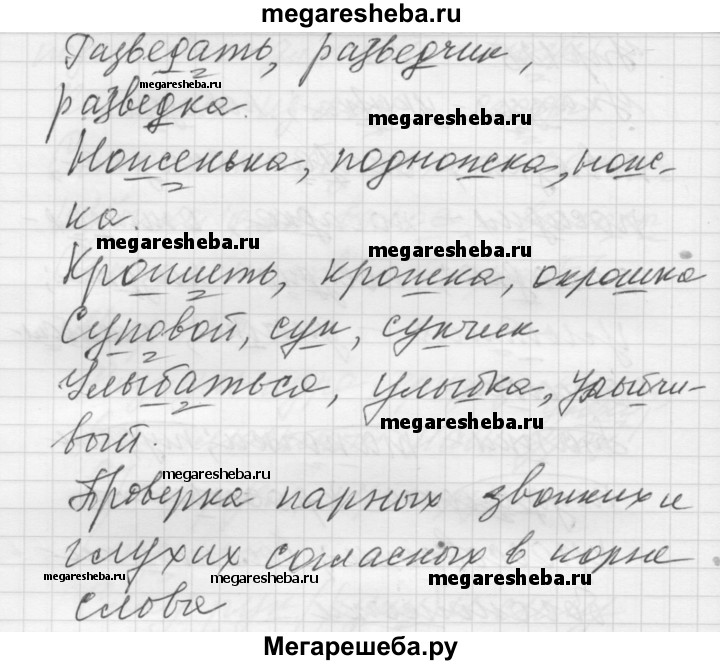 megaresheba.ru
Разведать, разведчик,
megaresheba.ru
разведка.
megaresheba.ru
Ноженька, подножка, нож-
ка.
megaresheba.ru
megaresheba.ru
Крошить, крошка, окрошка
Суповой, суп, супчик
Улыбаться, улыбка, улыбчи-
megaresheba.ru
вый.
megaresheba.ru
Проверка парных звонких и
глухих согласных в корне
megaresheba.ru
megaresheba.ru
megaresheba.ru
слова
Мегарешеба.ру